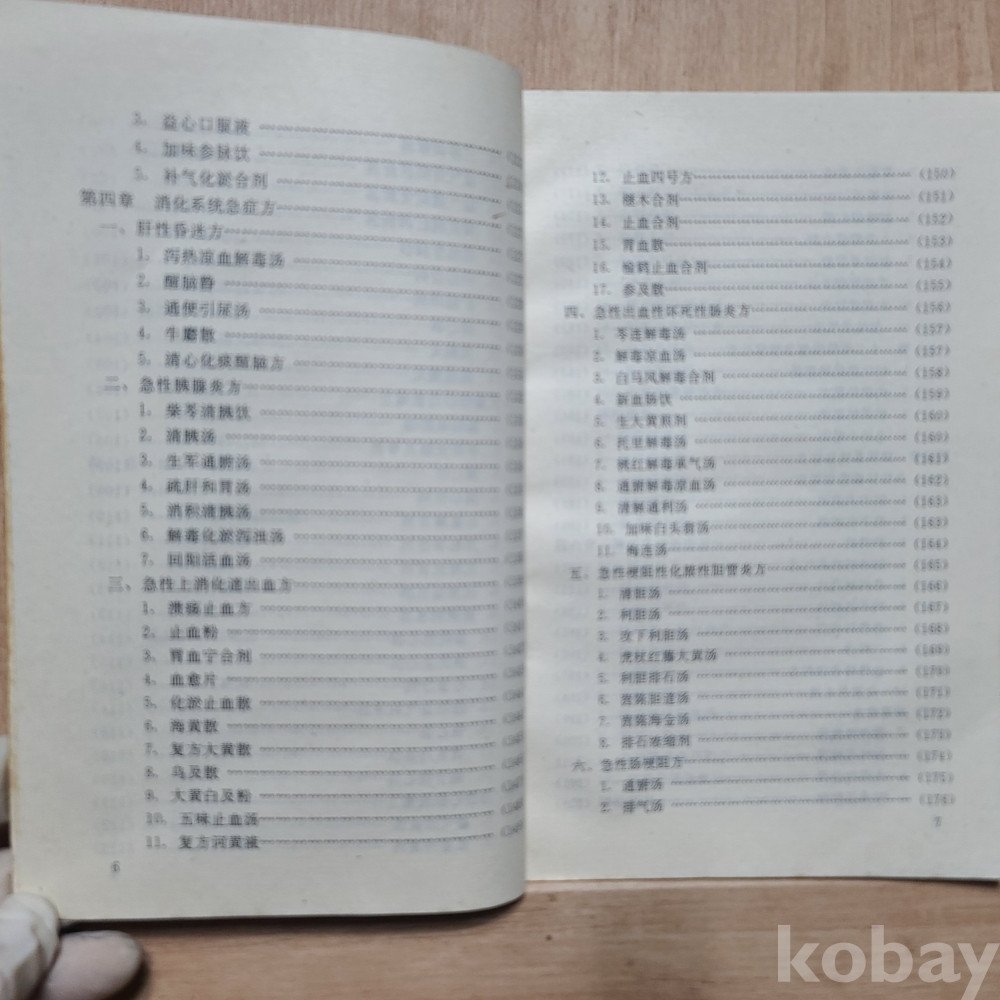 3. 益心口服液
4. 加味参脉饮
5. 补气化淤合剂
第四章 消化系统急症方
一、肝性昏迷方
1. 泻热凉血解毒汤
2. 醒脑静
3. 通便引尿汤
4. 牛麝散
5. 清心化痰醒脑方
二、急性胰腺炎方
1. 柴芩清胰饮
2. 清胰汤
3. 生军通腑汤
4. 疏肝和胃汤
5. 消积清胰汤
6. 解毒化淤泻浊汤
7. 回阳活血汤
三、急性上消化道出血方
1. 溃疡止血方
2. 止血粉
3. 胃血宁合剂
4. 血愈片
5. 化淤止血散
6. 海黄散
7. 复方大黄散
8. 乌及散
9. 大黄白及粉
10. 五味止血汤
11. 复方河黄液
6
12. 止血四号方 (150)
13. 木合剂 (151)
14. 止血合剂 (152)
15. 胃血散 (153)
16. 榆鹤止血合剂 (154)
17. 参及散 (155)
四、急性出血性坏死性肠炎方 (156)
1. 芩连解毒汤 (157)
2. 解毒凉血汤 (157)
3. 白马凤解毒合剂 (158)
4. 肠饮 (159)
5. 生大黄煎剂 (160)
6. 托里解毒汤 (160)
7. 桃红解毒承气汤 (161)
8. 通腑解毒凉血汤 (162)
9. 清解通利汤 (163)
10. 加味白头翁汤 (163)
11. 梅连汤 (164)
五、急性梗阻性化脓性胆管炎方 (165)
1. 清胆汤 (166)
2. 利胆汤 (167)
3. 攻下利胆汤 (168)
4. 虎杖红藤大黄汤 (169)
5. 利胆排石汤 (170)
6. 茵陈胆道汤 (171)
7. 茵陈海金汤 (172)
8. 排石液缩剂 (173)
六、急性肠梗阻方 (174)
1. 通腑汤 (175)
2. 排气汤 (176)
7
kobay